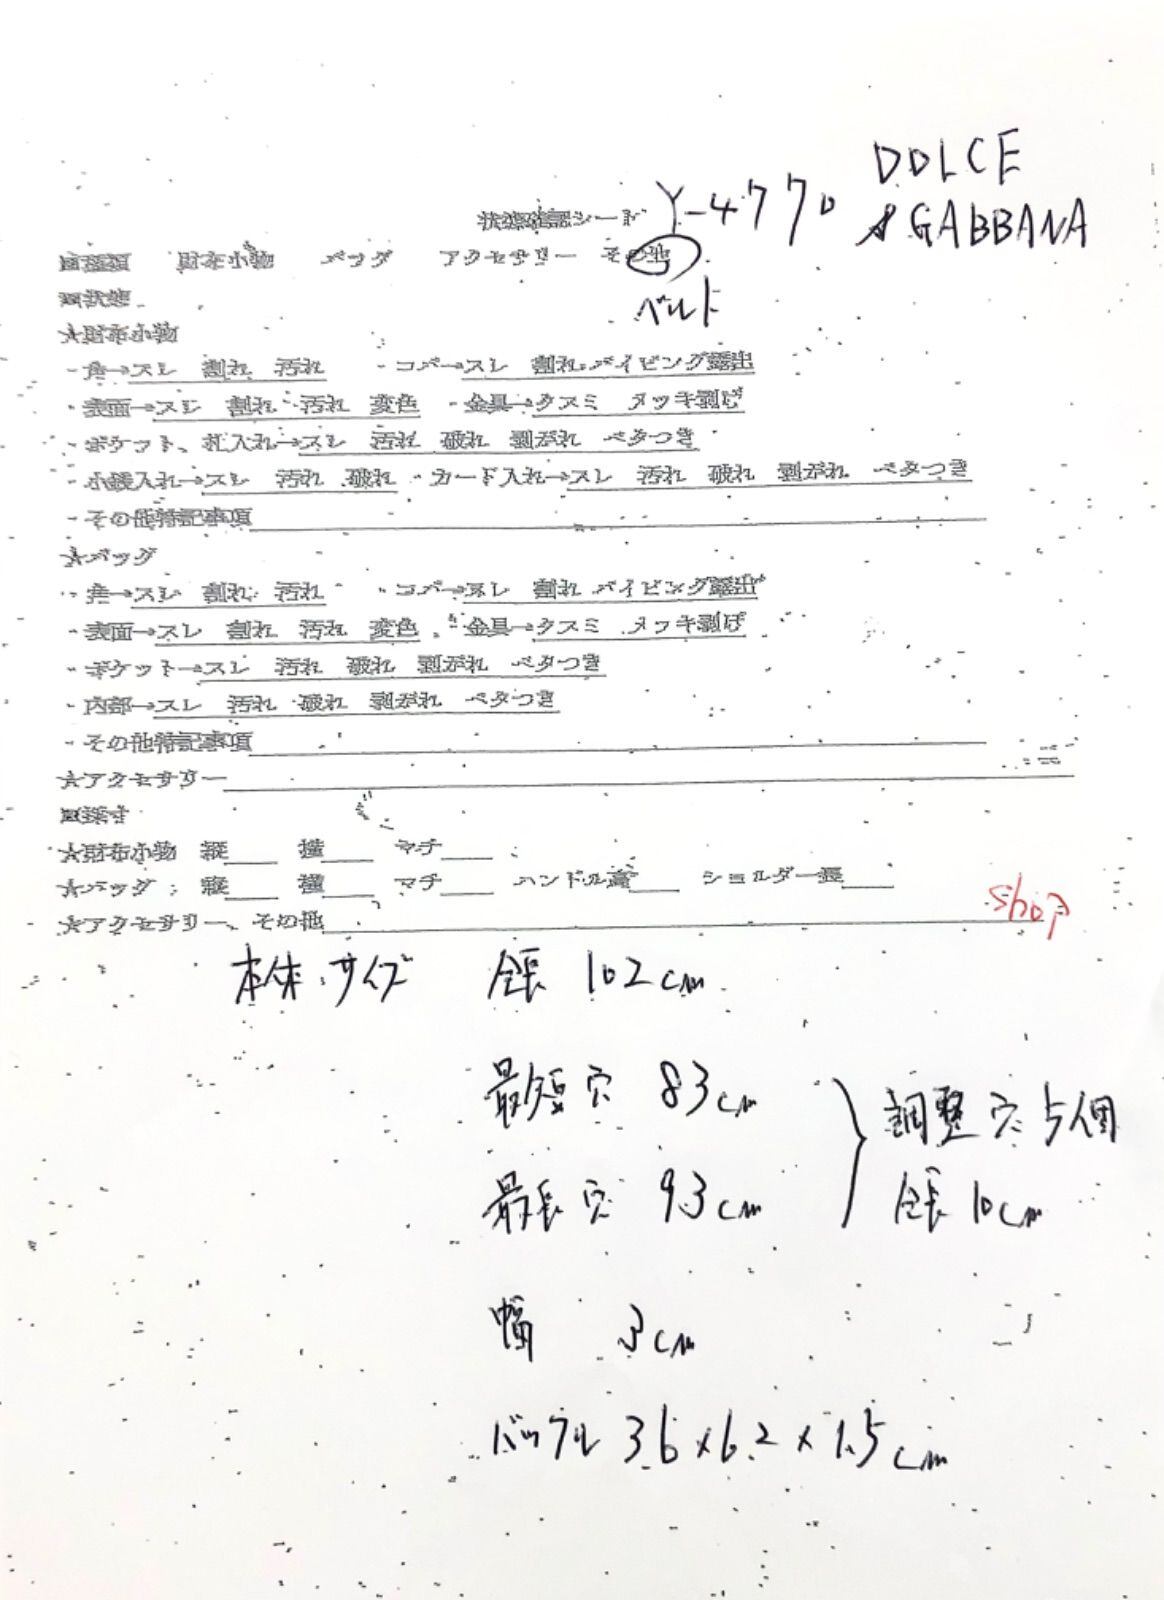 DOLCE
状態確認シート Y-4770 & GABBANA
■種類 財布小物 バッグ アクセサリー その他
ベルト
■状態
★財布小物
・角→スレ 割れ 汚れ ・コバ→スレ 割れ パイピング露出
・表面→スレ 割れ 汚れ 変色 ・金具→クスミ メッキ剥げ
・ポケット、札入れ→スレ 汚れ 破れ 剥がれ ベタつき
・小銭入れ→スレ 汚れ 破れ ・カード入れ→スレ 汚れ 破れ 剥がれ ベタつき
・その他特記事項
★バッグ
・角→スレ 割れ 汚れ ・コバ→スレ 割れ パイピング露出
・表面→スレ 割れ 汚れ 変色 ・金具→クスミ メッキ剥げ
・ポケット→スレ 汚れ 破れ 剥がれ ベタつき
・内部→スレ 汚れ 破れ 剥がれ ベタつき
・その他特記事項
★アクセサリー
■採寸
★財布小物 縦 横 マチ
★バッグ 縦 横 マチ ハンドル高 ショルダー長
★アクセサリー、その他 shop
本体サイズ 全長 102cm
最短穴 83cm
調整穴 5個
最長穴 93cm
全長 10cm
幅 3cm
バックル 3.6×6.2×1.5cm